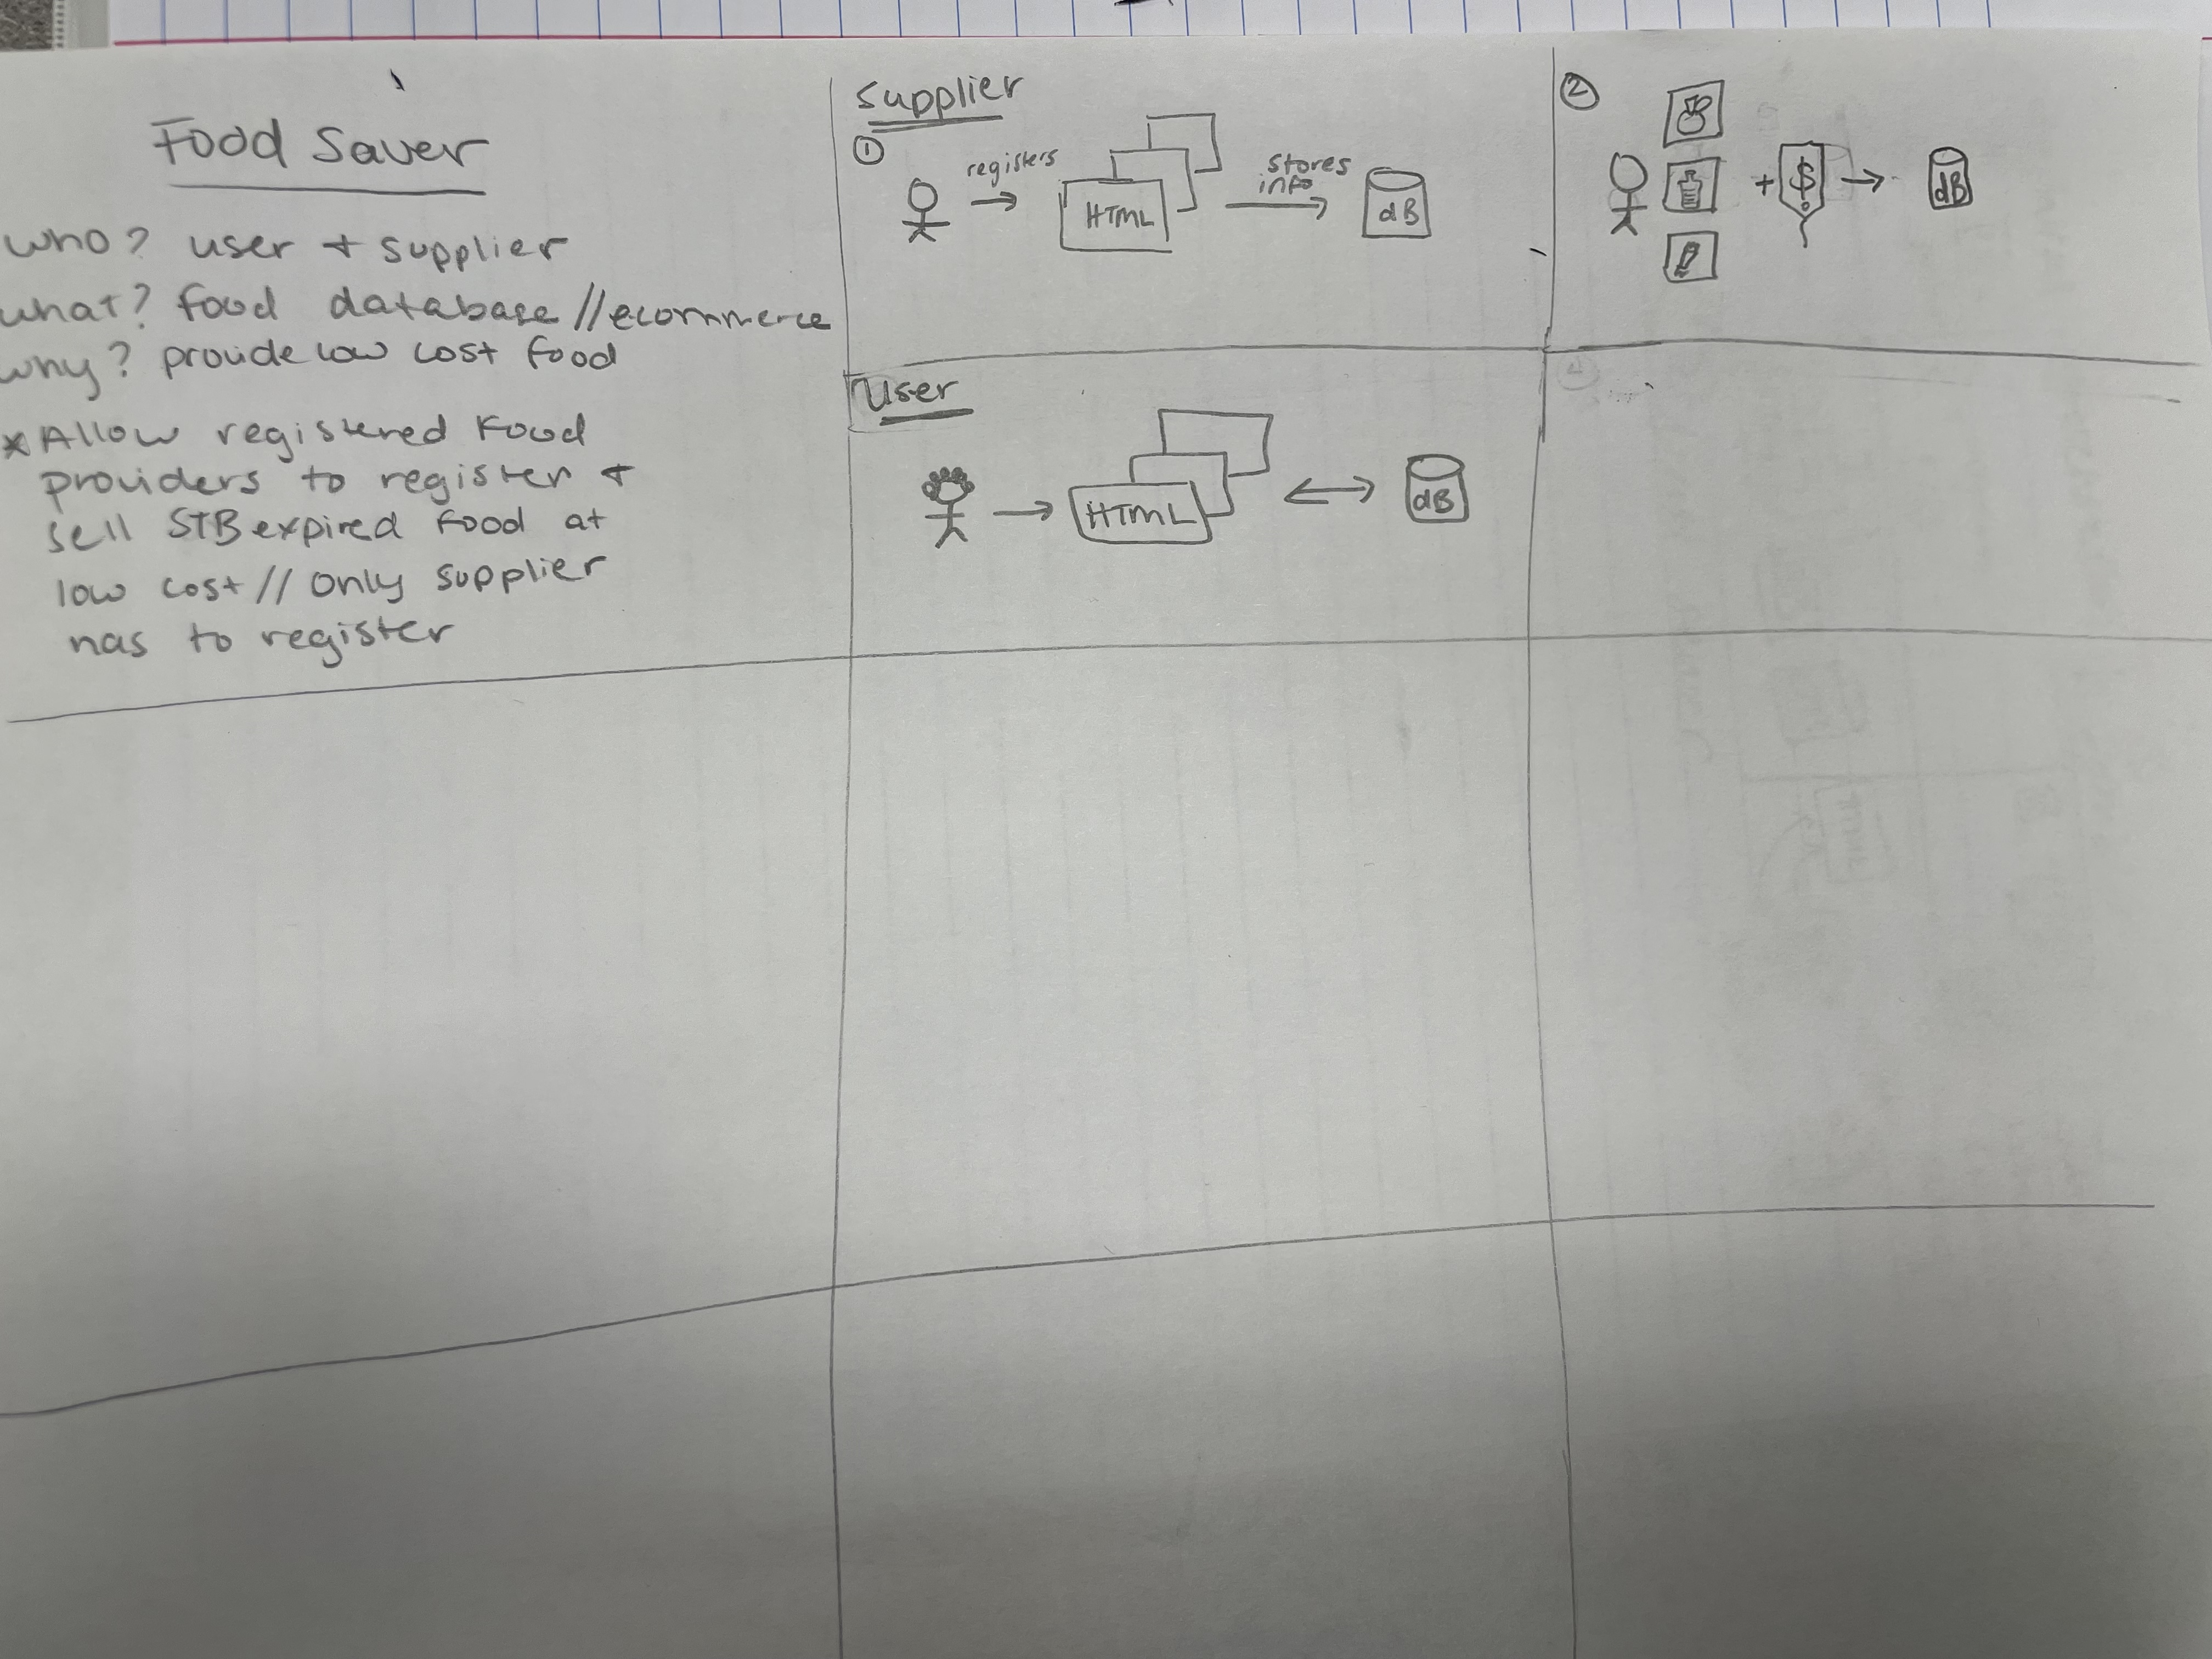 Food Saver
who? user + supplier
what? food database//ecommerce
why? provide low cost food
*Allow registered Food
providers to register +
sell STB expired food at
low cost // only supplier
has to register
Supplier
①
registers
HTML
stores
info
dB
②
$
dB
User
HTML
dB